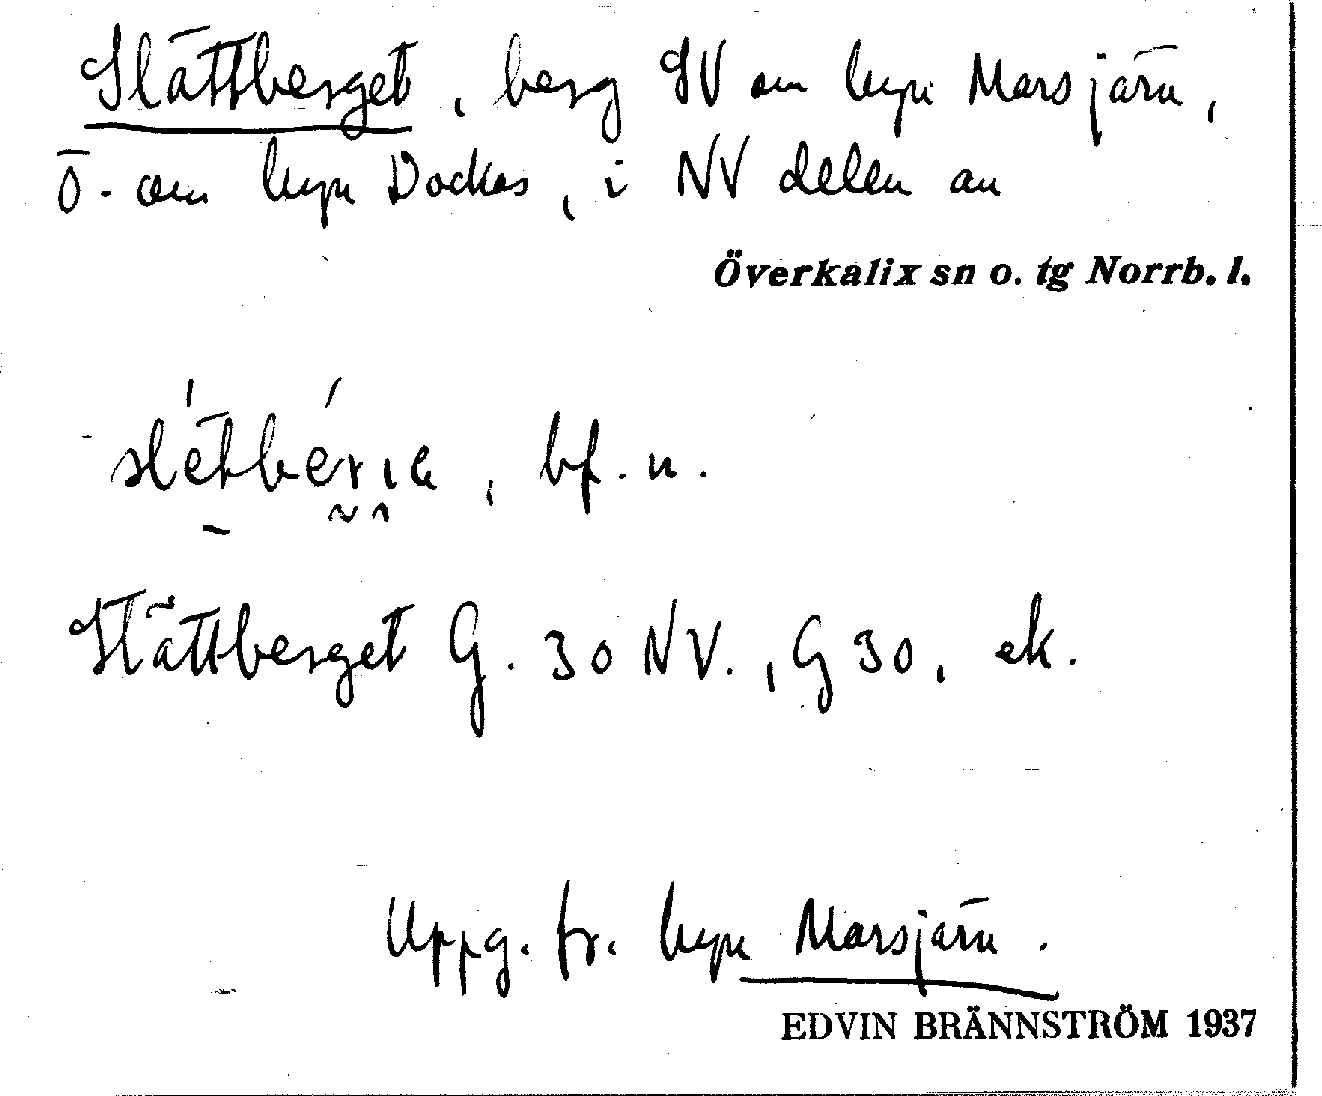 Slättberget, berg SV om byn Marsjärv,
Ö. om byn Dockas, i NV delen av
Överkalix sn o. tg Norrb. l.
bf. n.
Slättberget G. 30 NV., G 30, ek.
Uppg. fr. byn Marsjärv.
EDVIN BRÄNNSTRÖM 1937